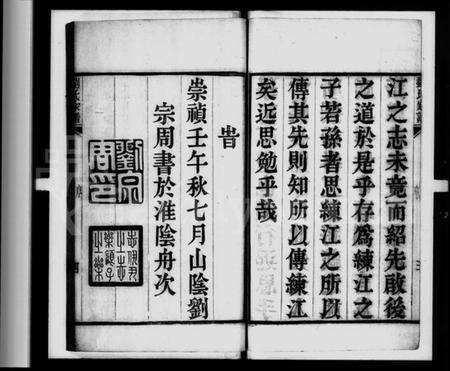 江之志未竟而紹先啟後
之道於是乎存爲練江之
子若孫者思練江之所以
傳其先則知所以傳練江
矣近思勉乎哉
旹
崇禎壬午秋七月山陰劉
宗周書於淮陰舟次
劉宗周印